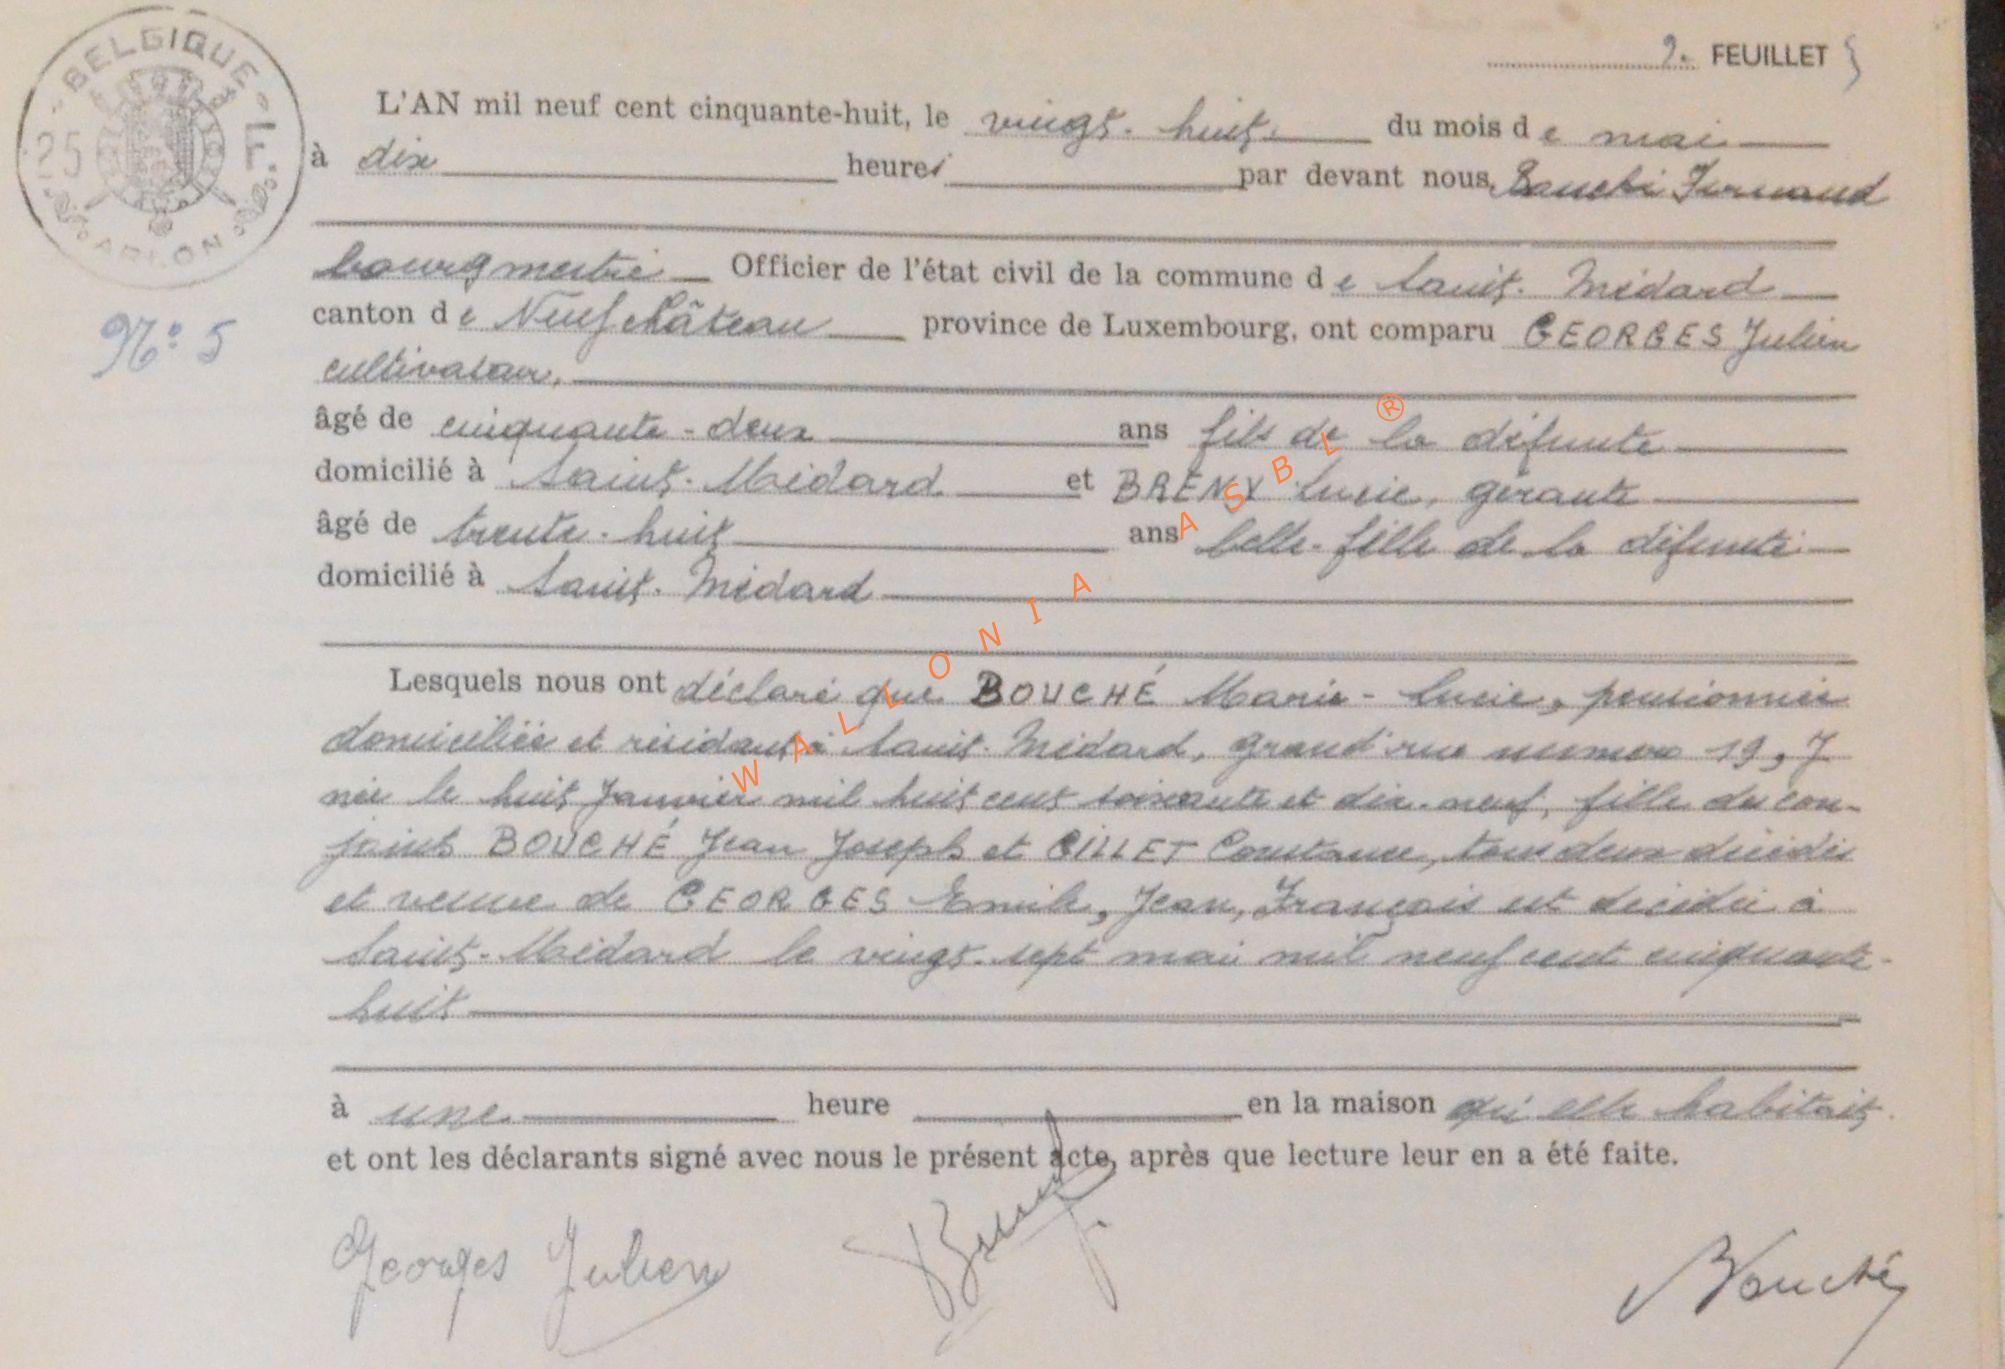 2. FEUILLET
BELGIQUE
25 Fr
ARLON
L'AN mil neuf cent cinquante-huit, le vingt-huit du mois de mai
à dix heures par devant nous, Bouché Fernand
bourgmestre Officier de l'état civil de la commune de Saint-Médard
N° 5
canton de Neufchâteau province de Luxembourg, ont comparu GEORGES Julien
cultivateur,
âgé de cinquante-deux ans fils de la défunte
domicilié à Saint-Médard et BRENY Lucie, gérante
âgé de trente-huit ans belle-fille de la défunte
domicilié à Saint-Médard
Lesquels nous ont déclaré que BOUCHÉ Marie-Lucie, pensionnée
domiciliée et résidant à Saint-Médard, grand'rue numéro 19,
née le huit Janvier mil huit cent soixante et dix-neuf, fille des con-
joints BOUCHÉ Jean Joseph et GILLET Constance, tous deux décédés
et veuve de GEORGES Emile, Jean, François est décédée à
Saint-Médard le vingt-sept mai mil neuf cent cinquante-
huit
à une heure en la maison qu'elle habitait.
et ont les déclarants signé avec nous le présent acte, après que lecture leur en a été faite.
Georges Julien
Bouché
WALLONIA ASBL ®